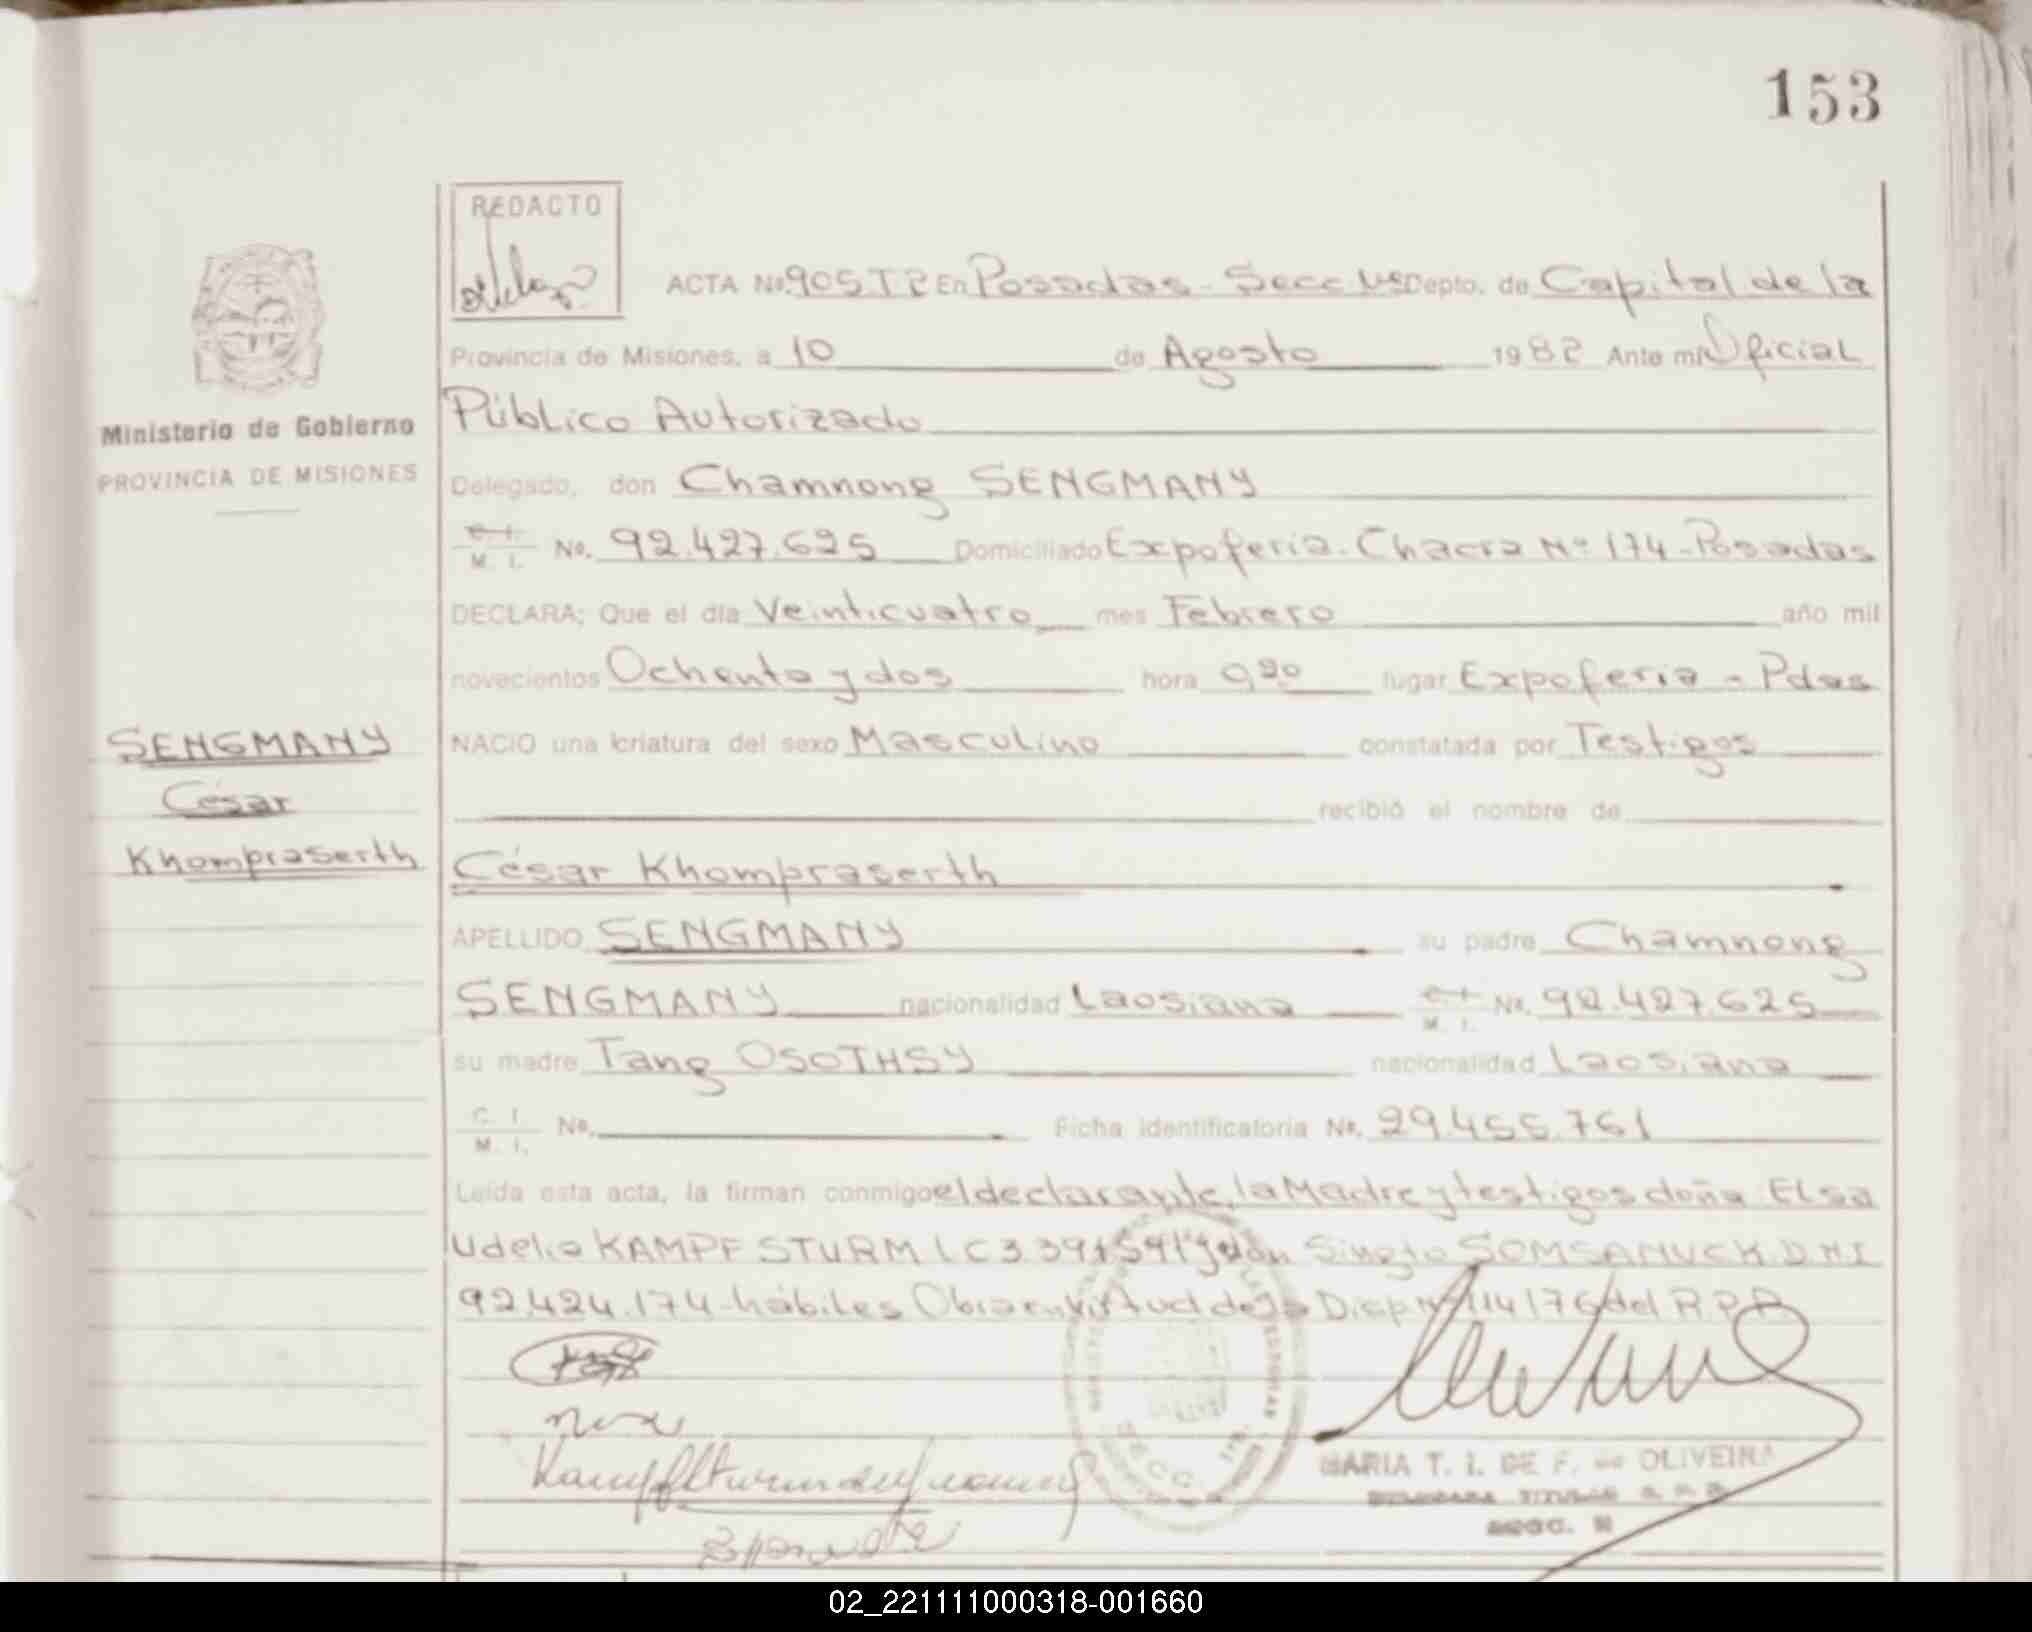 153
REDACTO
ACTA No. 905 T2 En Posadas - Secc Depto. de Capital de la
Provincia de Misiones, a 10 de Agosto 1982 Ante mi Oficial
Público Autorizado
Ministerio de Gobierno
PROVINCIA DE MISIONES
Delegado, don Chamnong SENGMANY
C. I. M. I. No. 92.427.625 Domiciliado Expoferia. Chacra Nº 174 - Posadas
DECLARA; Que el día Veinticuatro mes Febrero año mil
novecientos Ochenta y dos hora 9 20 lugar Expoferia - Pdas
NACIO una criatura del sexo Masculino constatada por Testigos
recibió el nombre de
SENGMANY
César
Khompraserth
César Khompraserth
APELLIDO SENGMANY su padre Chamnong
SENGMANY nacionalidad Laosiana C. I. M. I. No. 92.427.625
su madre Tang OSOTHSY nacionalidad Laosiana
C. I. M. I. No. Ficha identificatoria No. 29.455.761
Leída esta acta, la firman conmigo el declarante, la Madre y testigos doña Elsa
Udelia KAMPF STURM LC 3.391.591 y don Singto SOMSANUCK D.N.I
92.424.174 - hábiles Obra en virtud de la Disp Nº 114/76 del R.P.P.
MARIA T. I. DE F. de OLIVEIRA
SECC.
02_221111000318-001660